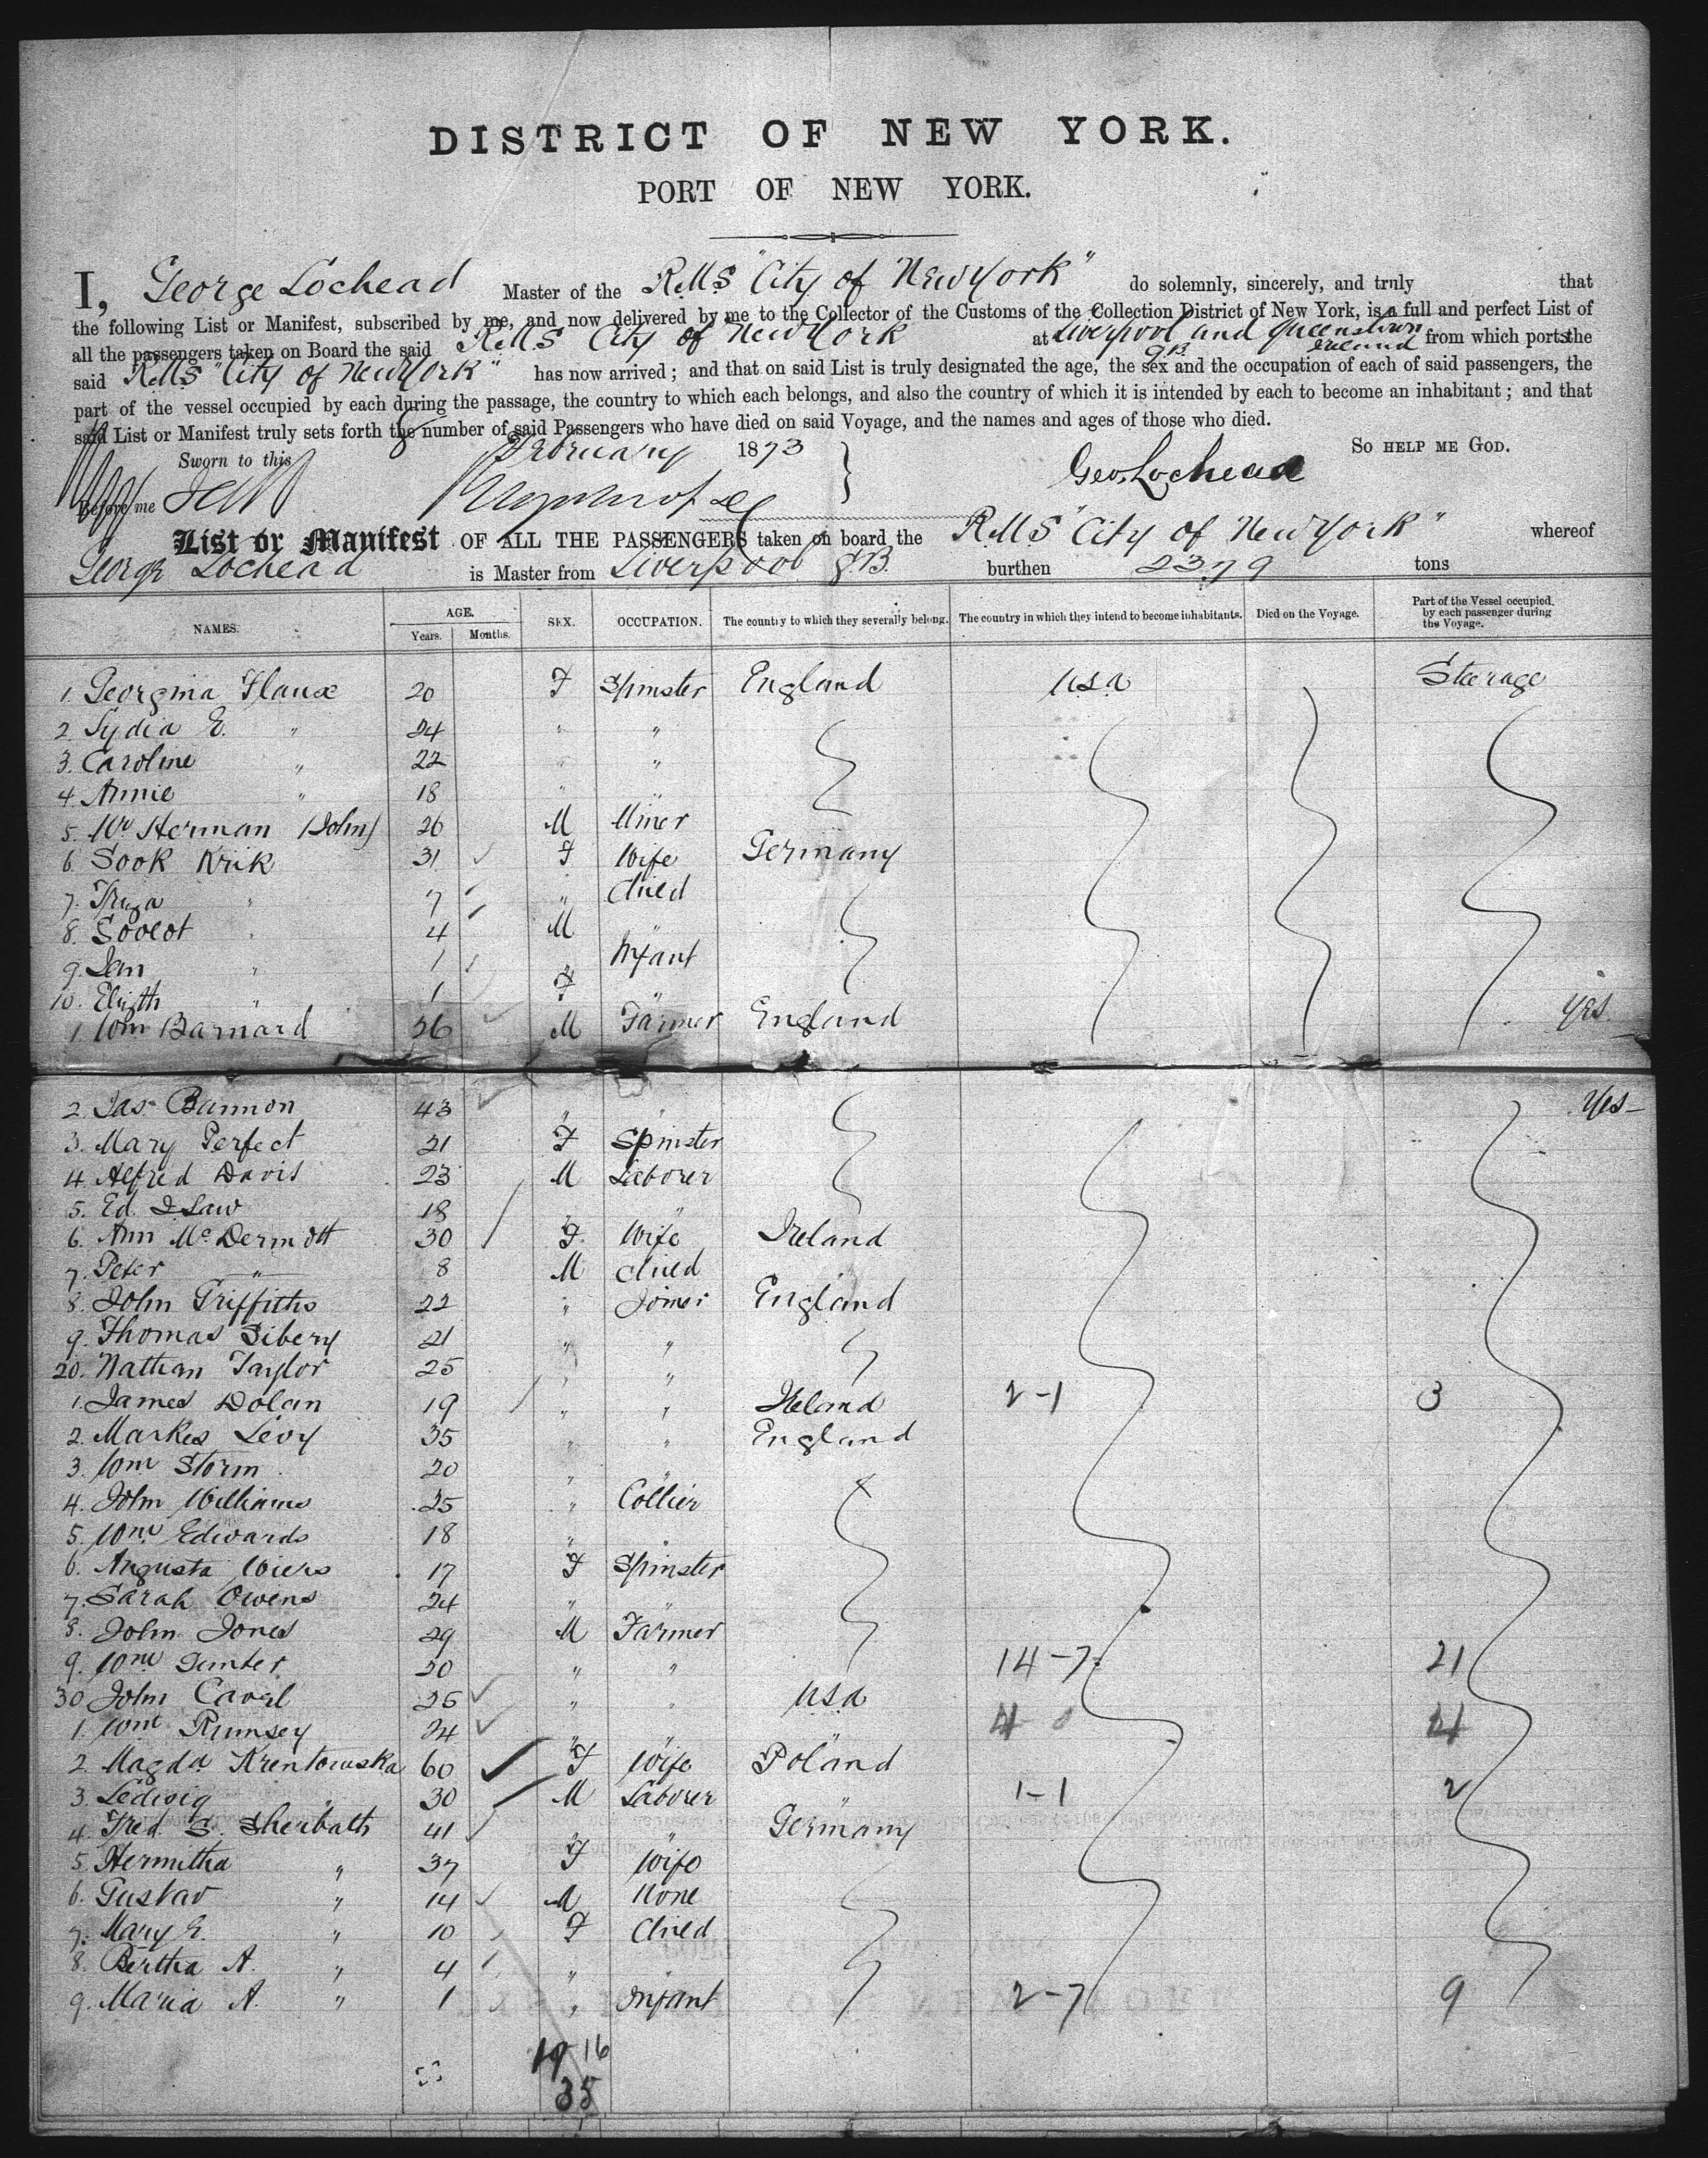 DISTRICT OF NEW YORK.
PORT OF NEW YORK.
I, George Lochead Master of the R.M.S "City of New York" do solemnly, sincerely, and truly that
the following List or Manifest, subscribed by me, and now delivered by me to the Collector of the Customs of the Collection District of New York, is a full and perfect List of
all the passengers taken on Board the said R.M.S City of New York at Liverpool and Queenstown from which ports the
G.B. Ireland
said R.M.S "City of New York" has now arrived; and that on said List is truly designated the age, the sex and the occupation of each of said passengers, the
part of the vessel occupied by each during the passage, the country to which each belongs, and also the country of which it is intended by each to become an inhabitant; and that
said List or Manifest truly sets forth the number of said Passengers who have died on said Voyage, and the names and ages of those who died.
Sworn to this February 1873 SO HELP ME GOD.
Geo. Lochead
Before me
List or Manifest OF ALL THE PASSENGERS taken on board the R.M.S "City of New York" whereof
George Lochead is Master from Liverpool G.B. burthen 2379 tons
NAMES. AGE. Years. Months. SEX. OCCUPATION. The country to which they severally belong. The country in which they intend to become inhabitants. Died on the Voyage. Part of the Vessel occupied by each passenger during the Voyage.
1. Georgina Flaux 20 F Spinster England USA Steerage
2. Lydia E. " 24 " "
3. Caroline " 22 " "
4. Annie " 18 " "
5. Wm Herman (John) 26 M Miner
6. Sook Krik 31 F Wife Germany
7. " 7 " Child
8. " 4 M "
9. Jan " 1 " Infant
10. " 1 F "
1. Wm Barnard 26 M Farmer England Yes.
2. Jas. Bannon 43 " " Yes-
3. Mary Perfect 21 F Spinster
4. Alfred Davis 23 M Laborer
5. Ed. J Law 18 " "
6. Ann McDermott 30 F. Wife Ireland
7. Peter " 8 M Child
8. John Griffiths 22 " Joiner England
9. Thomas Sibery 21 " "
20. Nathan Taylor 25 " "
1. James Dolan 19 " " Ireland 2-1 3
2. Markes Levy 35 " " England
3. Wm Storm 20 " "
4. John Williams 25 " Collier
5. Wm Edwards 18 " "
6. Augusta Wiers 17 F Spinster
7. Sarah Owens 24 " "
8. John Jones 29 M Farmer
9. Wm 20 " " 14-7 21
30 John Caval 25 " " USA
1. Wm Rumsey 24 " " 4 4
2. Magda Krentowska 60 F Wife Poland
3. Ledwig " 30 M Laborer " 1-1 2
4. Fred S. Sherbath 41 " " Germany
5. Hermitha " 37 F Wife
6. Gustav " 14 M None
7. Mary E. " 10 F Child
8. Bertha A. " 4 " "
9. Maria A. " 1 " Infant 2-7 9
19 16
35